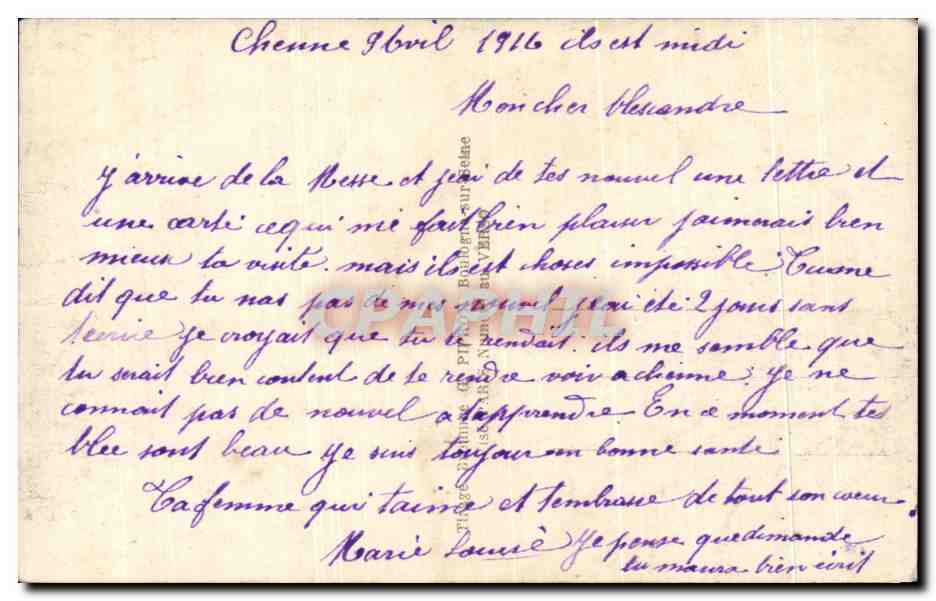 Chenne 9 Avril 1916 ils est midi
Mon cher Alexandre
J'arrive de la Messe et jeai de tes nouvel une lettre et
une carte ce qui me fait bien plaisir jaimerais bien
mieux ta visite. mais ils est choses impossible. Tu me
dit que tu nas pas de mes nouvel jeai été 2 jours sans
tecrire je croyait que tu te rendait. ils me semble que
tu serait bien content de te rendre voir a chenne. Je ne
connait pas de nouvel a tapprendre En ce moment tes
blee sont beau Je suis toujour en bonne santé
Ta femme qui taime et tembrasse de tout son coeur.
Marie Louise Je pense que dimande
tu maura bien écrit
CPAPHIL
Boulogne-sur-Seine